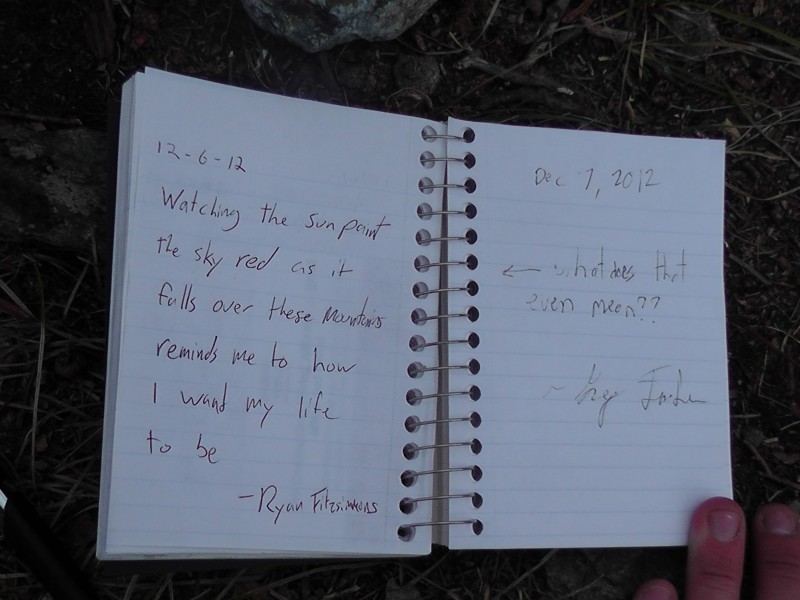 12-6-12
Watching the sun paint
the sky red as it
falls over these mountains
reminds me to how
I want my life
to be
-Ryan Fitzsimmons
Dec 7, 2012
← what does that
even mean??